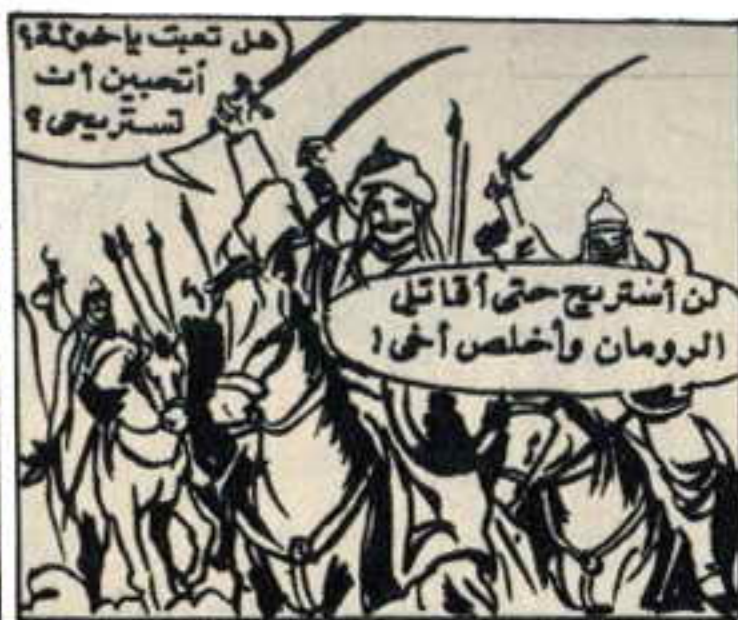 هل تعبت ياخولة؟
أتحبين أن
تستريحى؟
لن أستريح حتى أقاتل
الرومان وأخلص أخى!